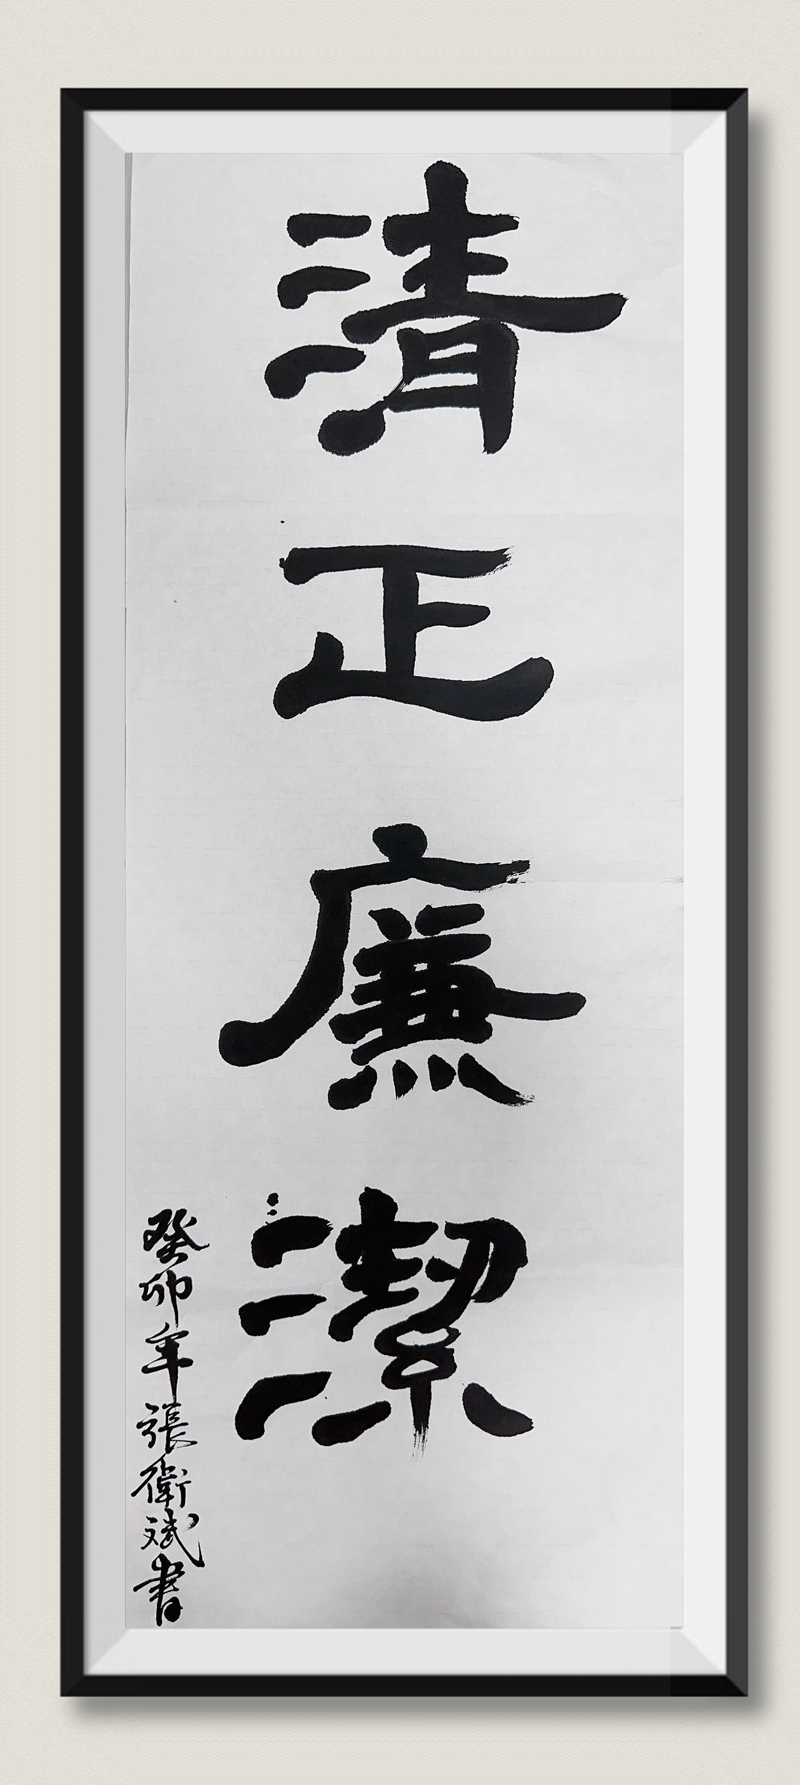 清正廉潔
癸卯年張衛斌書